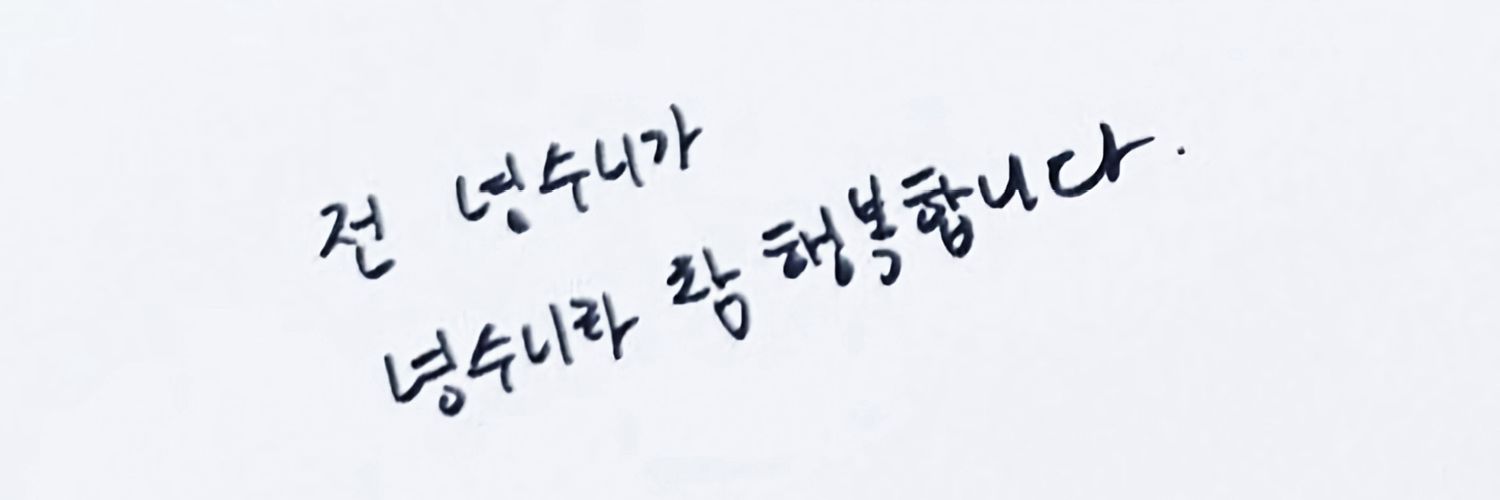 전 녕수니가
녕수니라 랑 행복합니다.